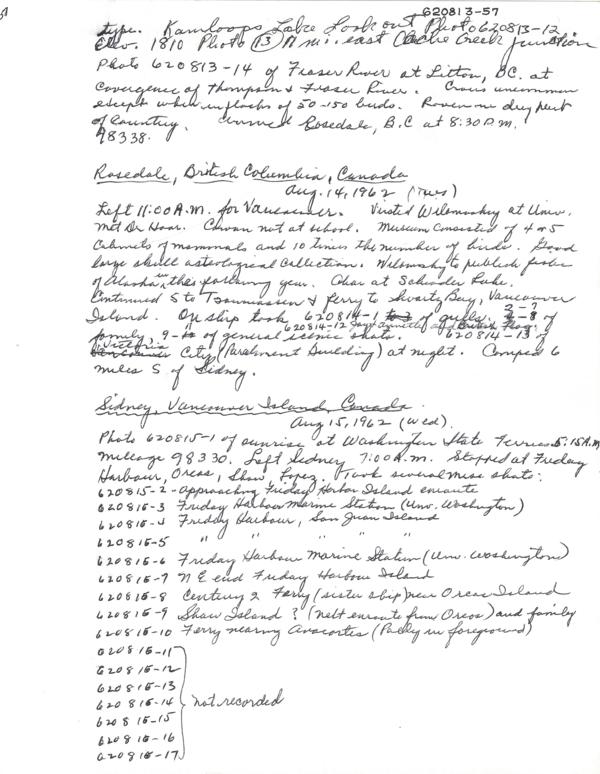 620813-57
type. Kamloops Lake Look out Photo 620813-12
Elev. 1810 Photo 13 mi. east Cache Creek junction
Photo 620813-14 of Fraser River at Litton, BC. at
Covergence of Thompson & Fraser River. Crows uncommon
except when in flocks of 50-150 birds. Raven in dry part
of Country. Arrived Rosedale, B.C at 8:30 P.M.
98338.
Rosedale, British Columbia, Canada
Aug. 14, 1962 (Tues)
Left 11:00 A.M. for Vancouver. Visited at Univ.
Met Dr Hoar. Cowan not at school. Museum consisted of 4 or 5
Cabinets of mammals and 10 times the number of birds. Good
large skull osteological Collection. to publish fishes
of Alaska the following year. at Lake.
Continued S to & ferry to Swartz Bay, Vancouver
2-7
Island. On ship took 620814-1 of gulls. -8 of
620814-12 of British Flag.
family, 9- of general scenic shots. 620814-13 of
Victoria
City (Parliment Building) at night. Camped 6
miles S of Sidney.
Sidney, Vancouver Island, Canada
Aug 15, 1962 (Wed).
Photo 620815-1 of sunrise at Washington State Ferries 5:15 A.M
Mileage 98330. Left Sidney 7:00 A.M. Stopped at Friday
Harbour, Orcas, Shaw, Lopez. Took several misc shots:
620815-2 - approaching Friday Harbor Island enroute
620815-3 Friday Harbour Marine Station (Univ. Washington)
620815-4 Friday Harbour, San Juan Island
620815-5 " " " " "
620815-6 Friday Harbour Marine Station (Univ. Washington)
620815-7 N E end Friday Harbour Island
620815-8 Century 2 Ferry (sister ship) near Orcas Island
620815-9 Shaw Island ? (next enroute from Orcas) and family
620815-10 Ferry nearing Anacortes (Polly in foreground)
620815-11
620815-12
620815-13
620815-14 not recorded
620815-15
620815-16
620815-17